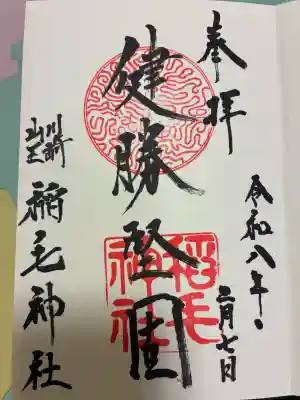 奉拝
令和八年
二月七日
健勝登固
川崎
山王
稲毛神社
稲毛
神社